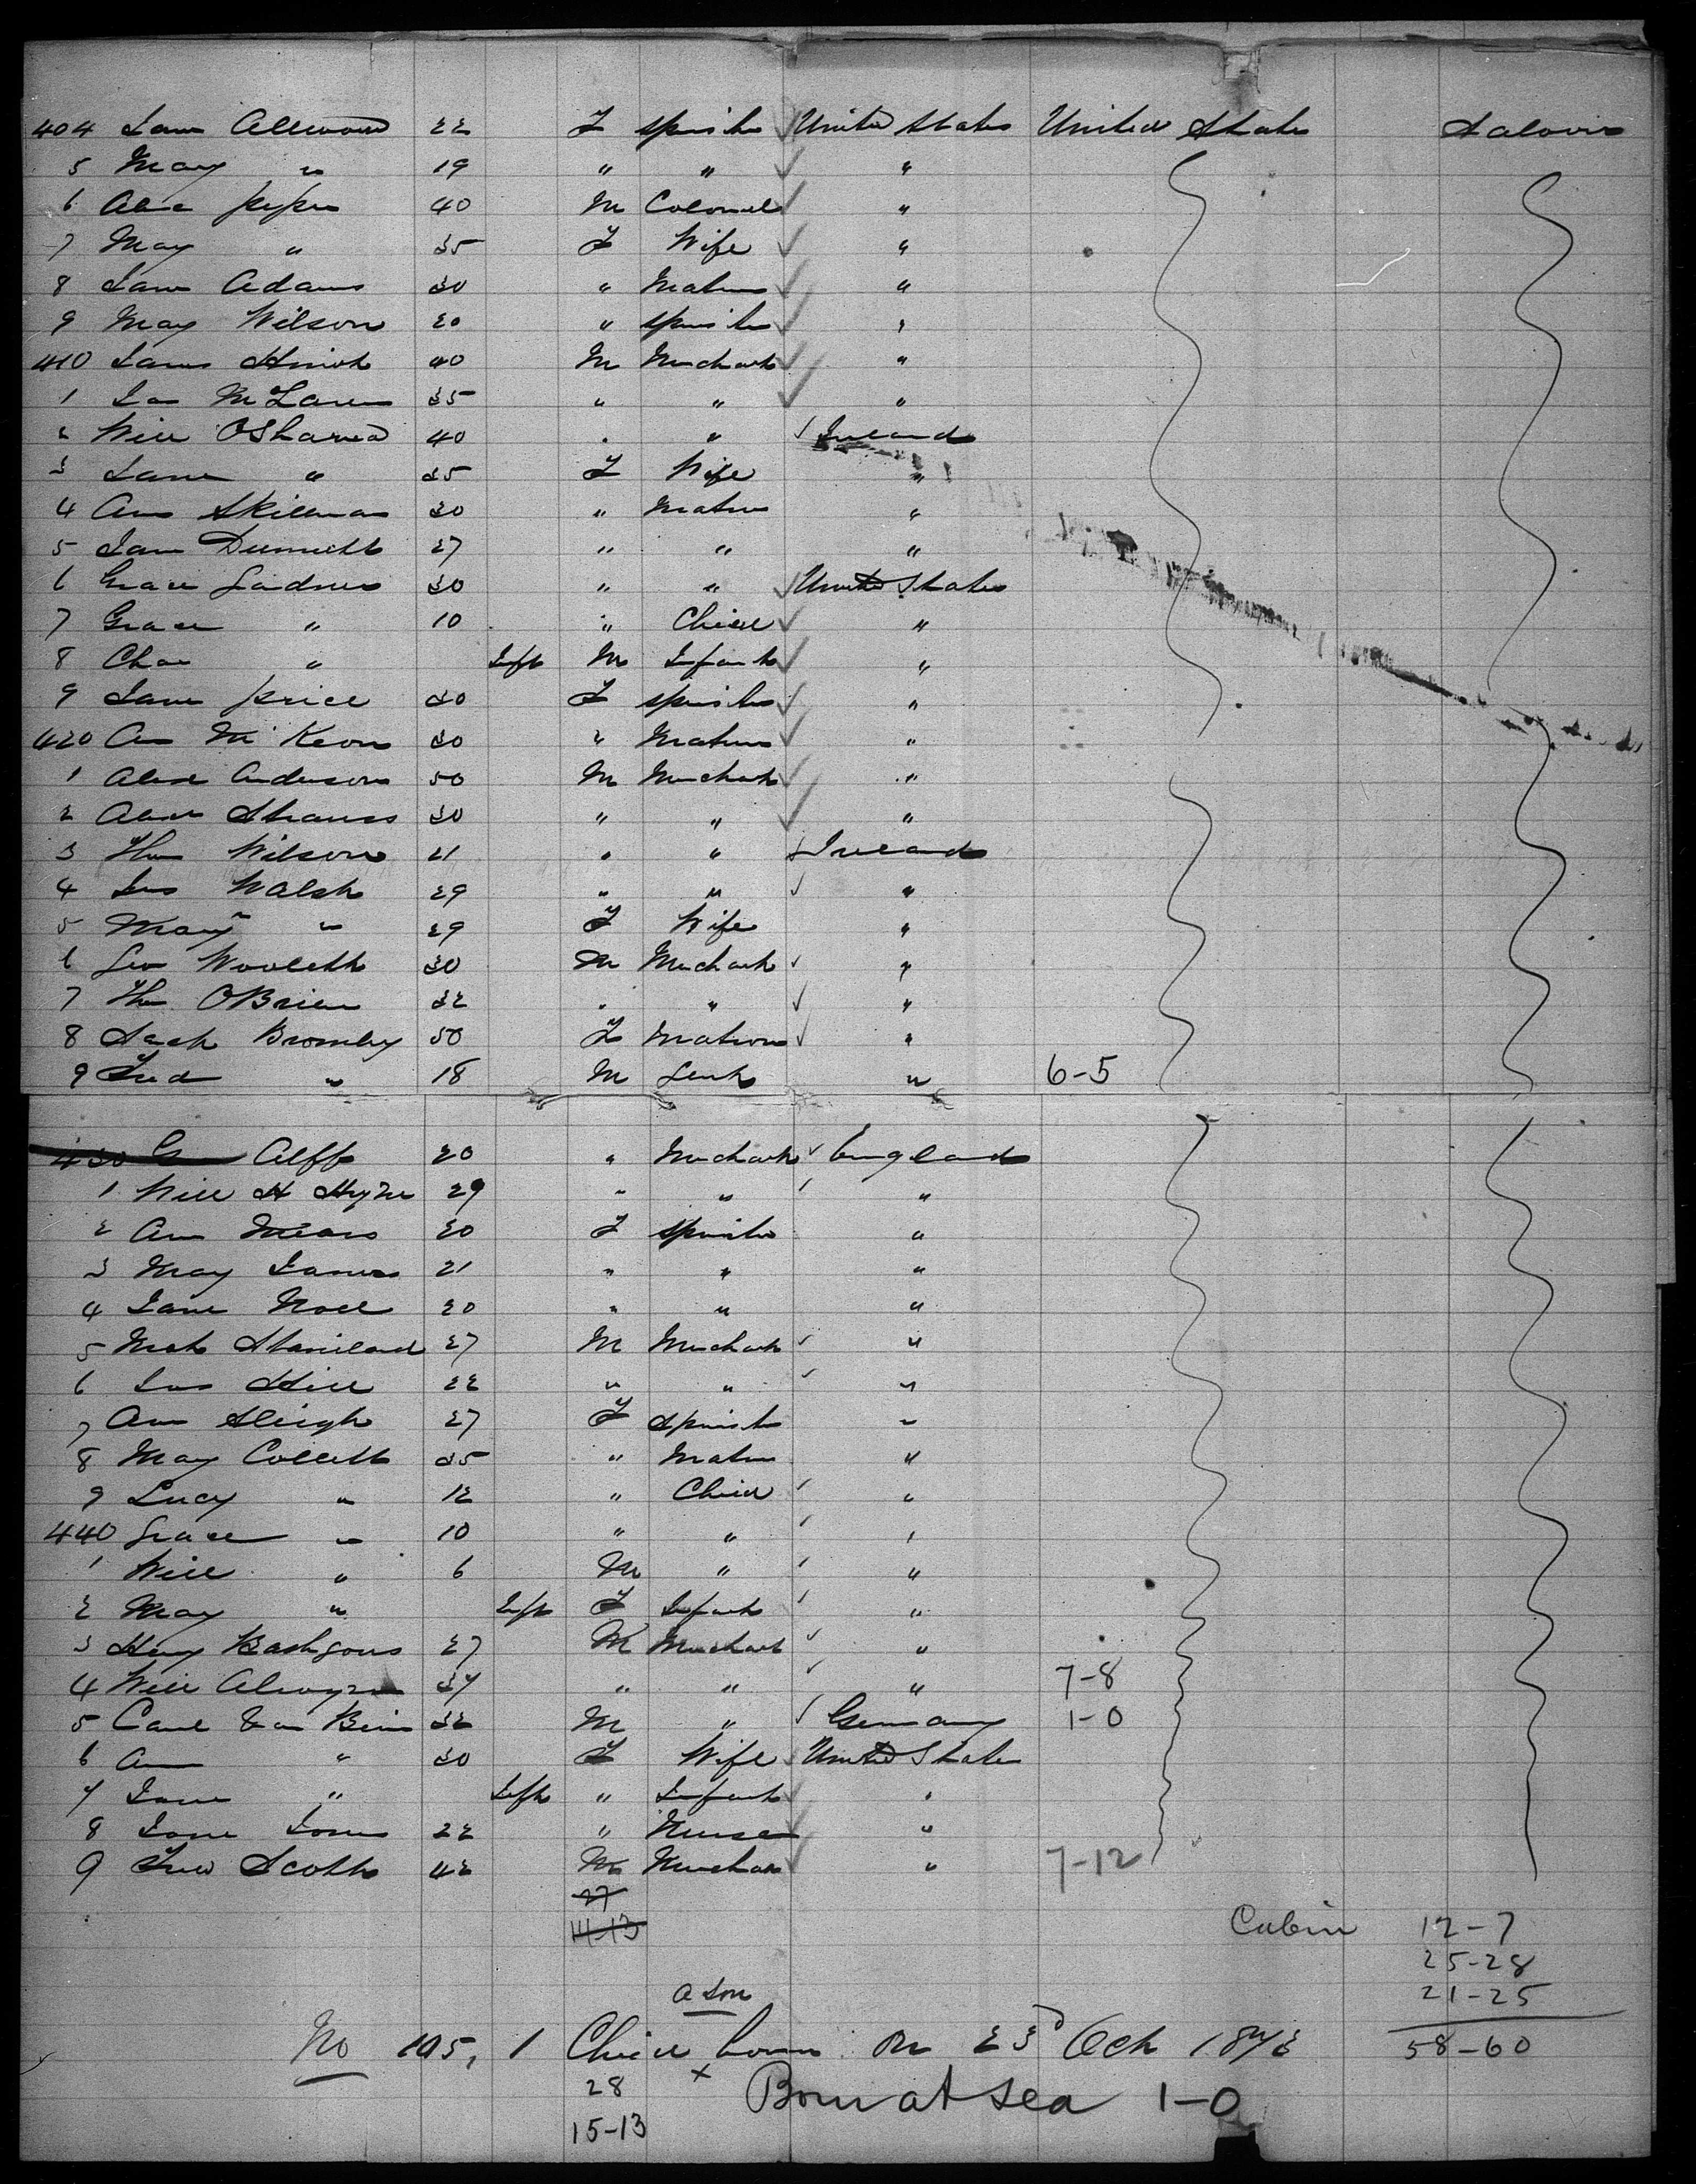 404 Jane Allwood 22 F Spinster United States United States Saloon
5 May " 19 " " "
6 Alex Piper 40 M Colonel "
7 May " 35 F Wife "
8 Jane Adams 30 " Matron "
9 May Wilson 20 " Spinster "
410 James Smith 40 M Merchant "
1 Jas McLaren 35 " " "
2 Will OSharned 40 " " Ireland
3 Jane " 35 F Wife "
4 Ann Skillman 30 " Matron "
5 Jane Dumett 27 " " "
6 Grace Gardner 30 " " United States
7 Grace " 10 " Child "
8 Chas " Inft M Infant "
9 Jane Price 30 F Spinster "
420 Ann McKeon 30 " Matron "
1 Alex Anderson 50 M Merchant "
2 Alex Strauss 30 " " "
3 Thos Wilson 21 " " Ireland
4 Jas Walsh 29 " " "
5 Mary " 29 F Wife "
6 Geo Woolett 30 M Merchant "
7 Thos OBrien 32 " " "
8 Sarah Bromley 50 F Matron "
9 Fred " 18 M Gent " 6-5
430 G Alff 20 " Merchant England
1 Will H 29 " " "
2 Ann Mears 20 F Spinster "
3 May James 21 " " "
4 Jane Noel 20 " " "
5 Staniland 27 M Merchant "
6 Jas Hill 22 " " "
7 Ann Sleigh 27 F Spinster "
8 May Collett 35 " Matron "
9 Lucy " 12 " Child "
440 Grace " 10 " " "
1 Will " 6 M " "
2 May " Inft F Infant "
3 Henry 27 M Merchant "
4 Will Alwyn 34 " " " 7-8
5 Carl Van Bein 32 M " Germany 1-0
6 Ann " 30 F Wife United States
7 Jane " Inft " Infant "
8 Jane Jones 22 " Nurse "
9 Fred Scott 42 M Merchant " 7-12
27
14-13
Cabin 12-7
25-28
21-25
a Son
No 105, 1 Child born on 23d Oct 1872 58-60
28 x Born at sea 1-0
15-13